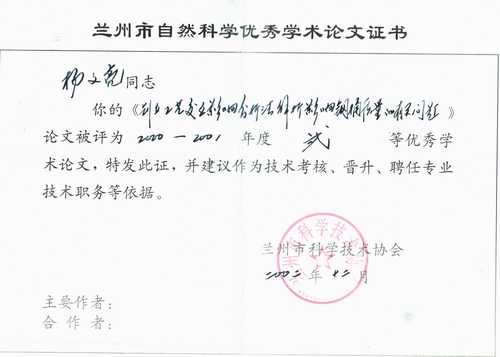 兰州市自然科学优秀学术论文证书
杨文亮同志
你的《 》
论文被评为 2000—2001 年度 贰 等优秀学
术论文，特发此证，并建议作为技术考核、晋升、聘任专业
技术职务等依据。
兰州市科学技术协会
二00二年十二月
主要作者：
合作者：